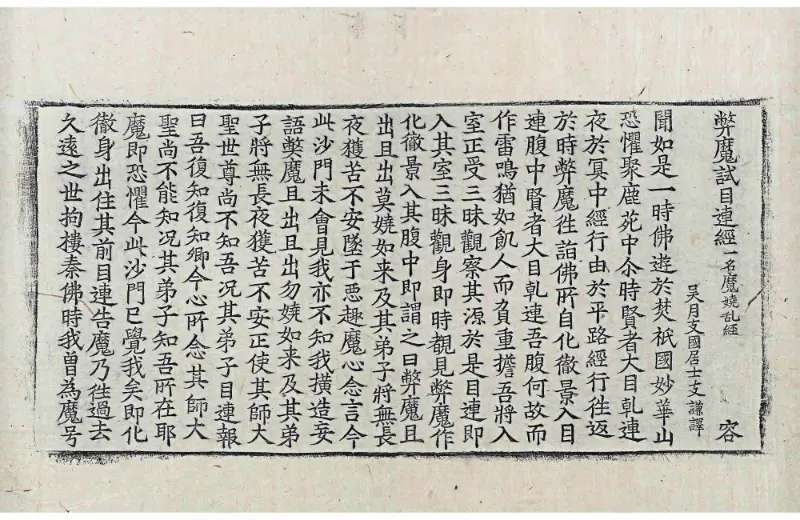 弊魔試目連經一名魔嬈乱經 容
吳月支國居士支謙譯
聞如是一時佛遊於焚祇國妙華山
恐懼聚鹿苑中尒時賢者大目乹連
夜於冥中經行由於平路經行往返
於時弊魔往詣佛所自化徹景入目
連腹中賢者大目乹連吾腹何故而
作雷鳴猶如飢人而負重擔吾將入
室正受三昧觀察其源於是目連即
入其室三昧觀身即時覩見弊魔作
化徹景入其腹中即謂之曰弊魔且
出且出莫嬈如来及其弟子將無長
夜獲苦不安墜于惡趣魔心念言今
此沙門未曾見我亦不知我撗造妄
語弊魔且出且出勿嬈如来及其弟
子將無長夜獲苦不安正使其師大
聖世尊尚不知吾况其弟子目連報
曰吾復知復知卿今心所念其師大
聖尚不能知况其弟子知吾所在耶
魔即恐懼今此沙門已覺我矣即化
徹身出住其前目連告魔乃往過去
久遠之世拘樓秦佛時我曽為魔号